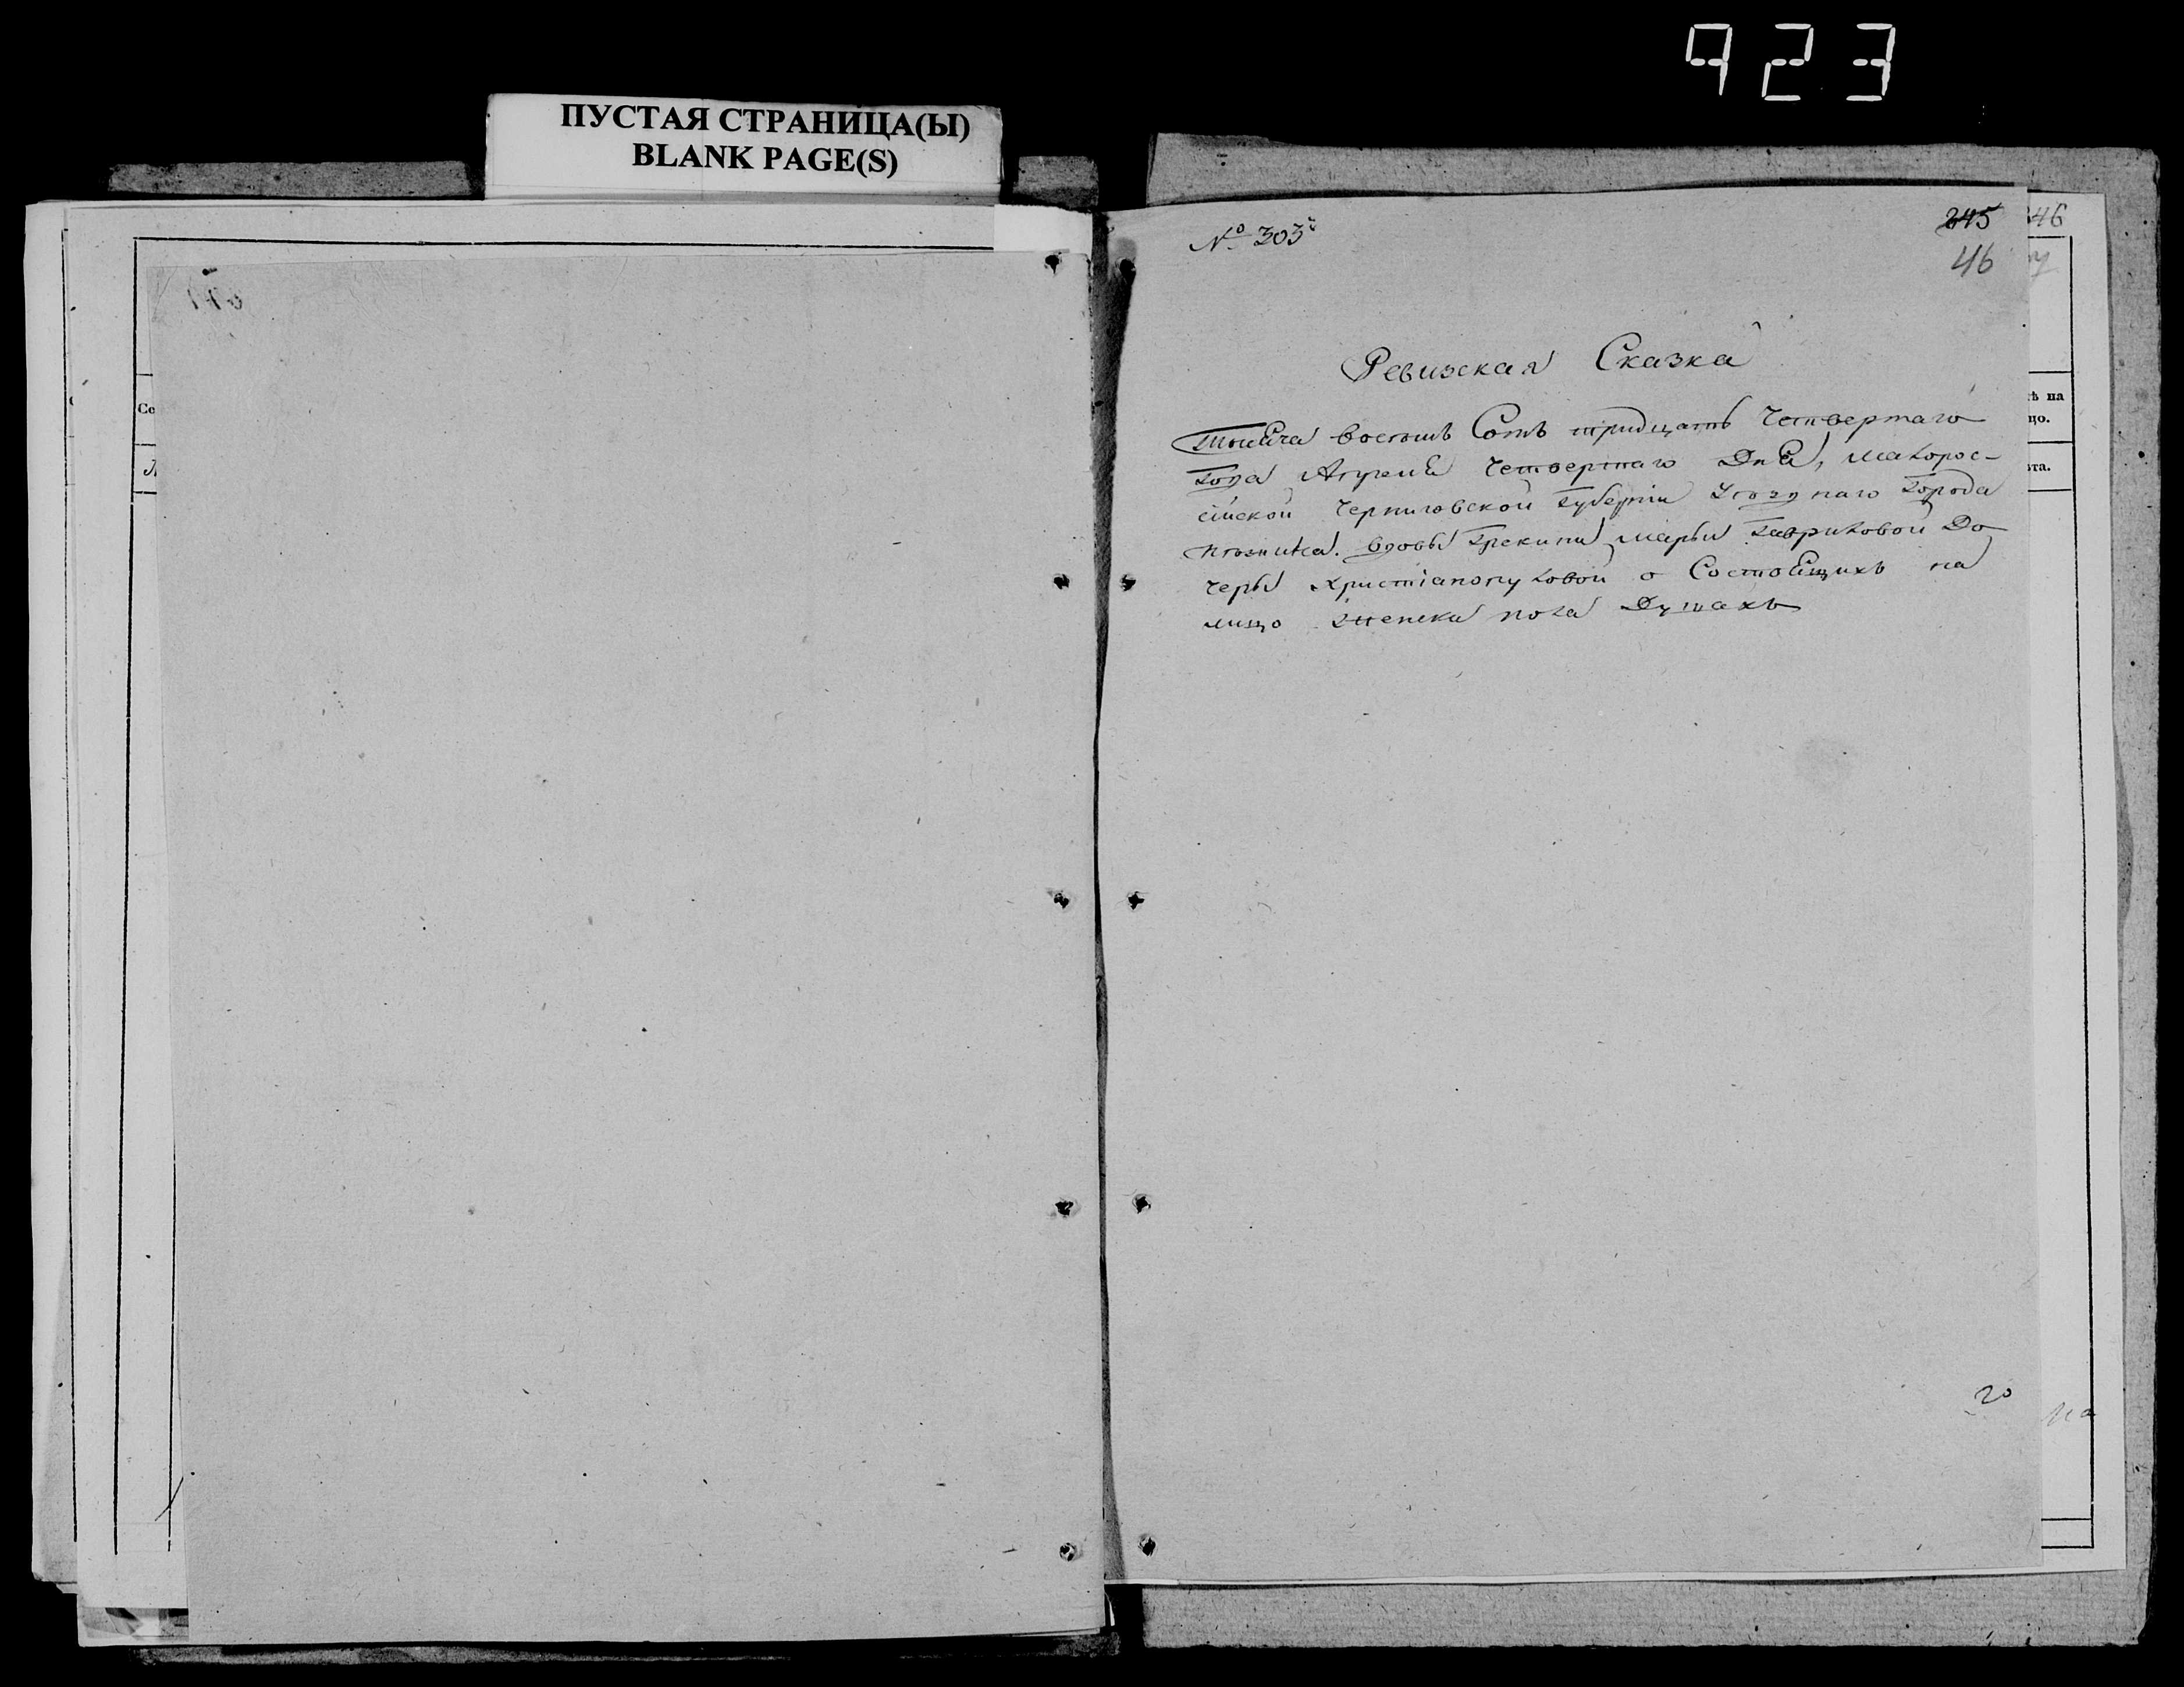 923
ПУСТАЯ СТРАНИЦА(Ы)
BLANK PAGE(S)
№ 303й
245 246
46
Ревизская Сказка
Тысяча восемь Сотъ тридцать Четвертаго
Года Апреля Четвертаго Дня, малорос-
ійской Черниговской Губерніи Уезднаго Города
Нежина. вдовы Грекини марьи Гавриловой До
черы Христіанопуловой о Состоящихъ на
лицо женска пола Душахъ
Се
ѣ на
цо.
ѣта.
20